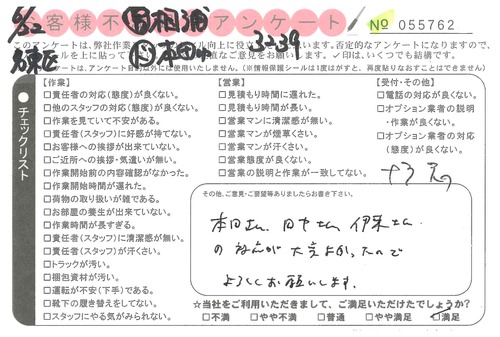 6/22
お客様不満足アンケート
№ 055762
このアンケートは、弊社作業
ール向上に役立
います。否定的なアンケートになりますので、
直なご意見をお願いします。✓印は、いくつでも結構です。
本田
3239
東区
【作業】
□責任者の対応(態度)が良くない。
□他のスタッフの対応(態度)が良くない。
□作業を見ていて不安がある。
□責任者(スタッフ)に好感が持てない。
□お客様への挨拶が出来ていない。
□ご近所への挨拶・気遣いが無い。
□作業開始前の内容確認がなかった。
□作業開始時間が遅れた。
□荷物の取り扱いが雑である。
□お部屋の養生が出来ていない。
□作業時間が長すぎる。
□責任者(スタッフ)に清潔感が無い。
□責任者(スタッフ)が汗くさい。
□トラックが汚い。
□梱包資材が汚い。
□運転が不安(下手)である。
□靴下の履き替えをしてない。
□スタッフにやる気がみられない。
【営業】
□見積もり時間に遅れた。
□見積もり時間が長い。
□営業マンに清潔感が無い。
□営業マンが煙草くさい。
□営業マンが汗くさい。
□営業態度が良くない。
□営業の説明と作業が一致してない。
【受付・その他】
□電話の対応が良くない。
□オプション業者の説明
・作業が良くない。
□オプション業者の対応
(態度)が良くない。
チェックリスト
その他、ご意見・ご要望等ありましたらお書き下さい。
本田さん、田中さん 伊味さん
よろしくお願いします。
☆当社をご利用いただきまして、ご満足いただけたでしょうか？
□不満 □やや不満 □普通 □やや満足 □満足